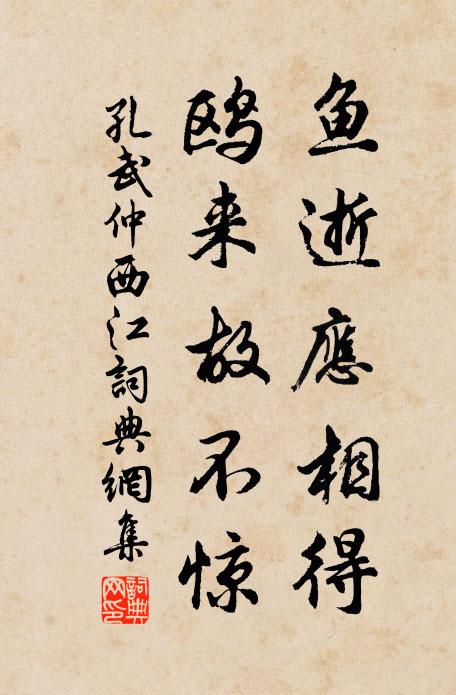 鱼逝應相得
鸥来故不惊
孔武仲西江詞典網集
詞典网印